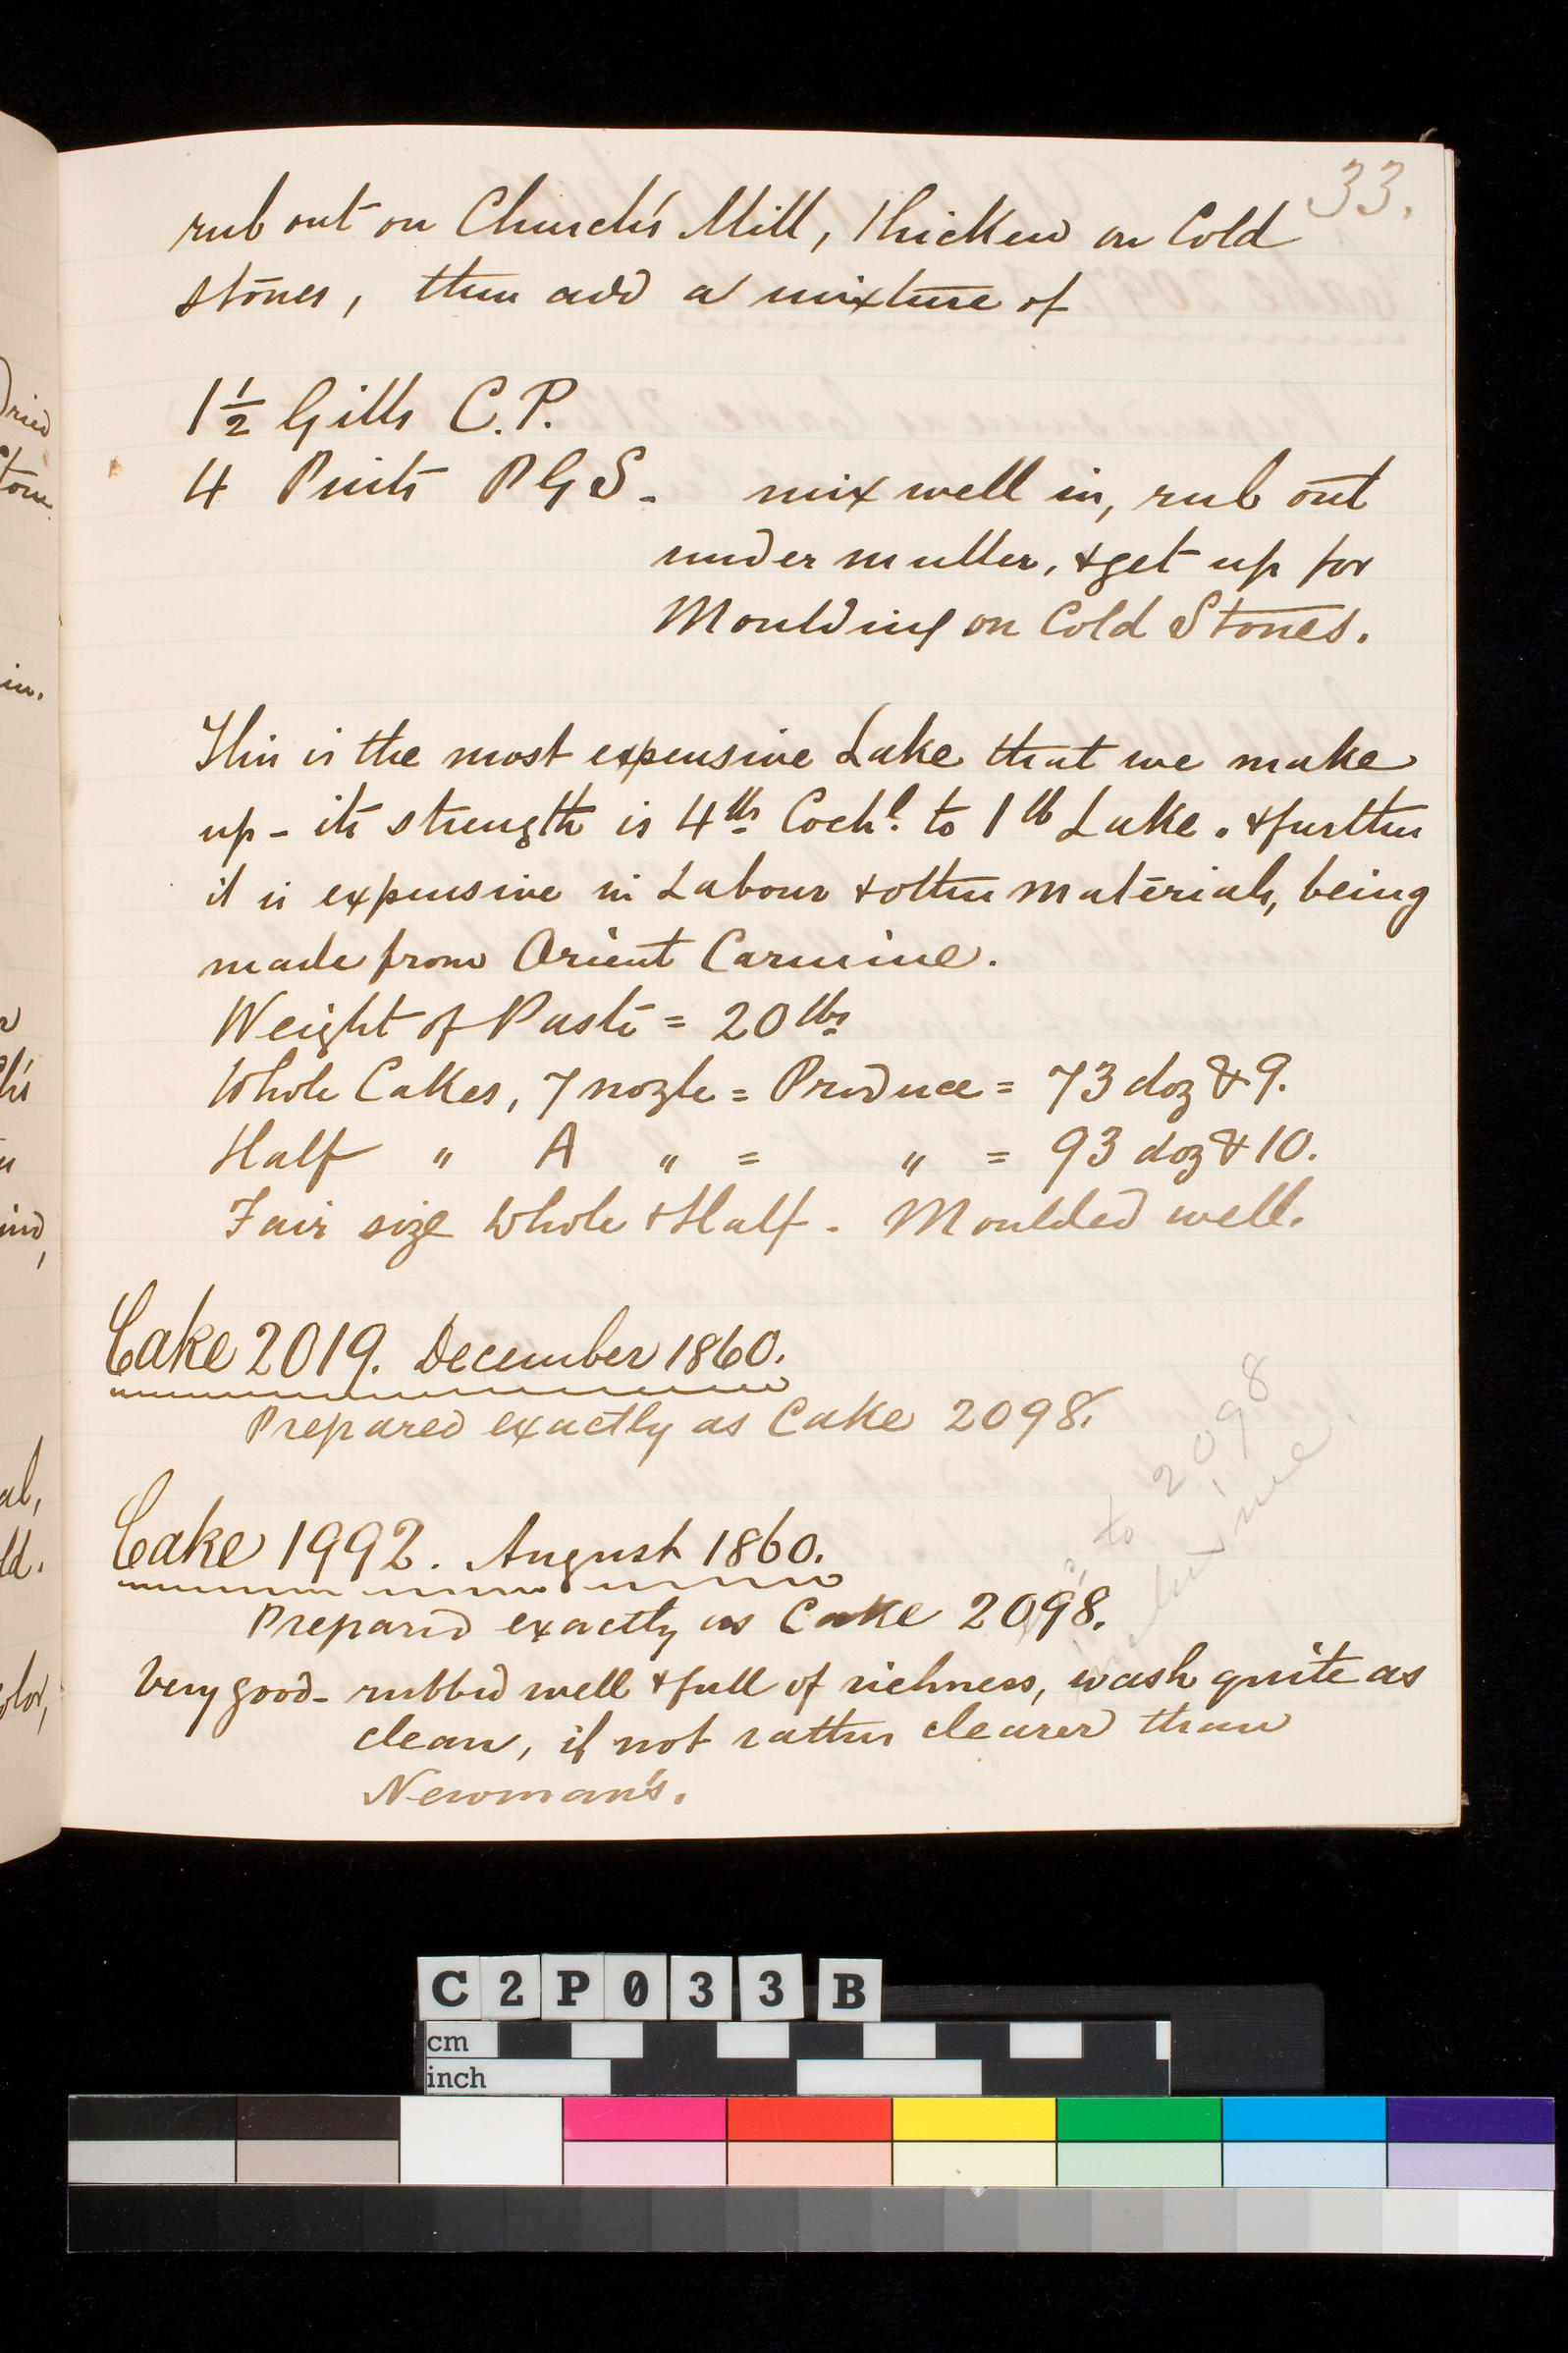 33.
rub out on Church's Mill, thicken on Cold
stones, then add a mixture of
1½ Gills C.P.
4 Pints P G S - mix well in, rub out
under muller, & get up for
Moulding on Cold Stones.
This is the most expensive Lake that we make
up - its strength is 4 lbs Cochl. to 1 lb Lake. & further
it is expensive in Labour & other materials, being
made from Orient Carmine.
Weight of Paste = 20 lbs
Whole Cakes, 7 nozle = Produce = 73 doz & 9.
Half " A " = " = 93 doz & 10.
Fair size Whole & Half - Moulded well.
Cake 2019. December 1860.
Prepared exactly as Cake 2098.
Cake 1992. August 1860.
Prepared exactly as Cake 2098.
Very good - rubbed well & full of richness, wash quite as
clean, if not rather clearer than
Newman's.
to 2098
Dried
Stone
in.
al,
ld.
color,
C2P033B
cm
inch